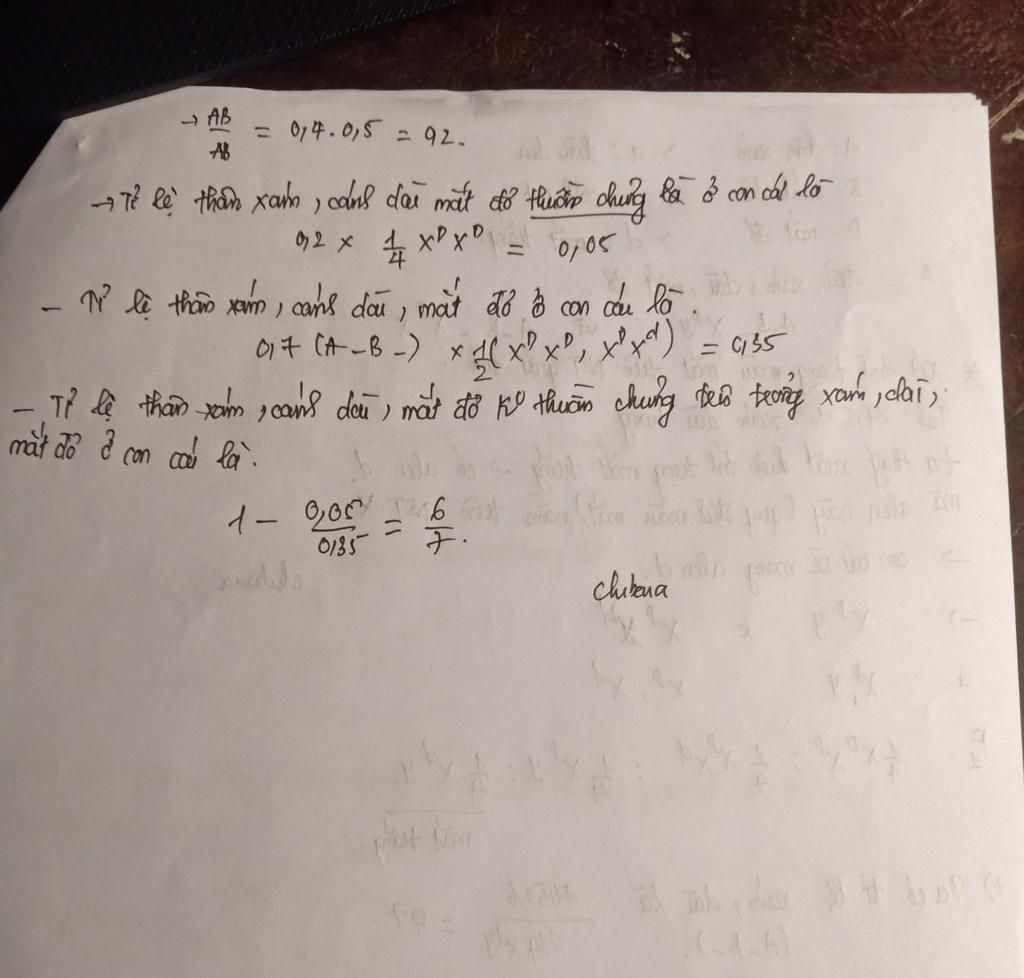 → AB/AB = 0,4 . 0,5 = 0,2.
→ Tỉ lệ thân xám, cánh dài mắt đỏ thuần chủng là ở con cái là
0,2 x 1/4 X^D X^D = 0,05
- Tỉ lệ thân xám, cánh dài, mắt đỏ ở con cái là.
0,7 (A-B-) x 1/2( X^D X^D, X^D X^d ) = 0,35
- Tỉ lệ thân xám, cánh dài, mắt đỏ ko thuần chủng trên trong xám, dài,
mắt đỏ ở con cái là.
1 - 0,05/0,35 = 6/7.